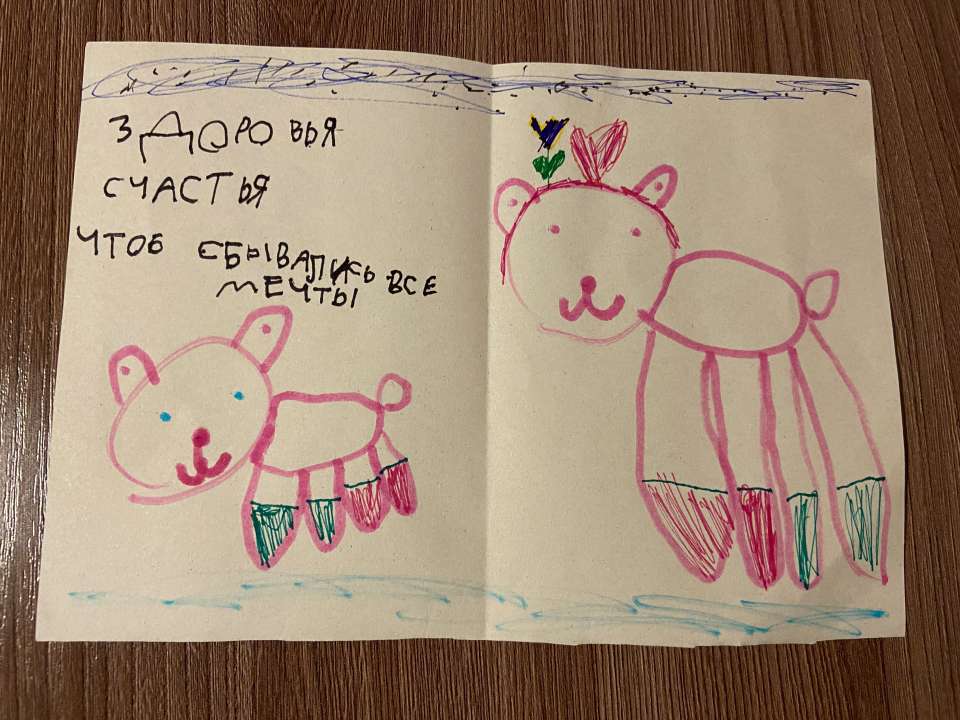 ЗДОРОВЬЯ
СЧАСТЬЯ
ЧТОБ СБЫВАЛИСЬ ВСЕ
МЕЧТЫ